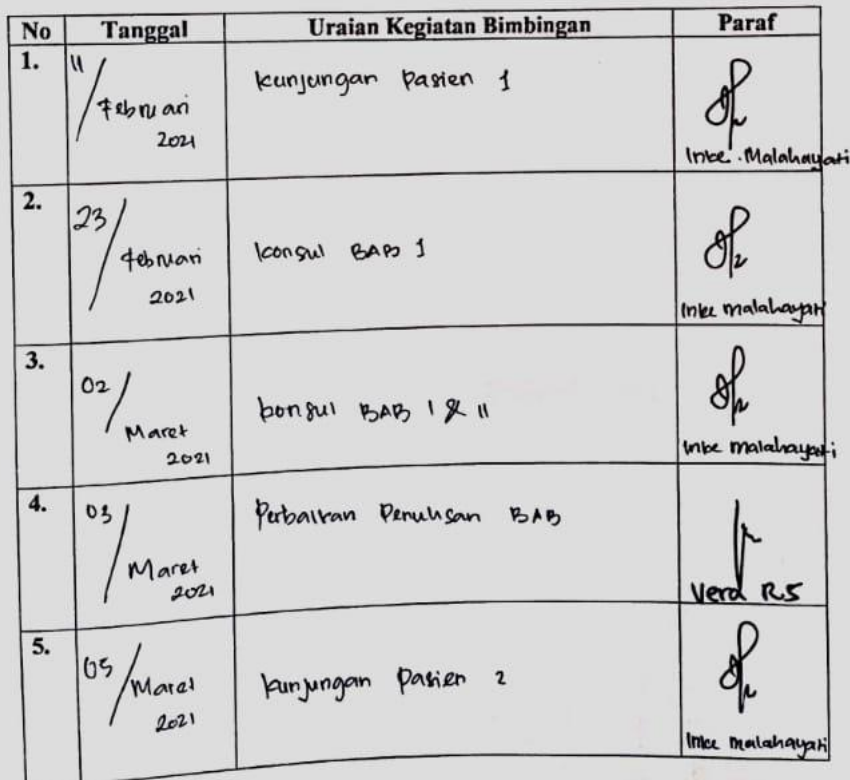 No Tanggal Uraian Kegiatan Bimbingan Paraf
1. 11 / Februari 2021 kunjungan Pasien 1
Inke Malahayati
2. 23 / Februari 2021 konsul BAB 1
Inke Malahayati
3. 02 / Maret 2021 konsul BAB I & II
Inke Malahayati
4. 03 / Maret 2021 Perbaikan Penulisan BAB
Vera R.S
5. 05 / Maret 2021 kunjungan Pasien 2
Inke Malahayati